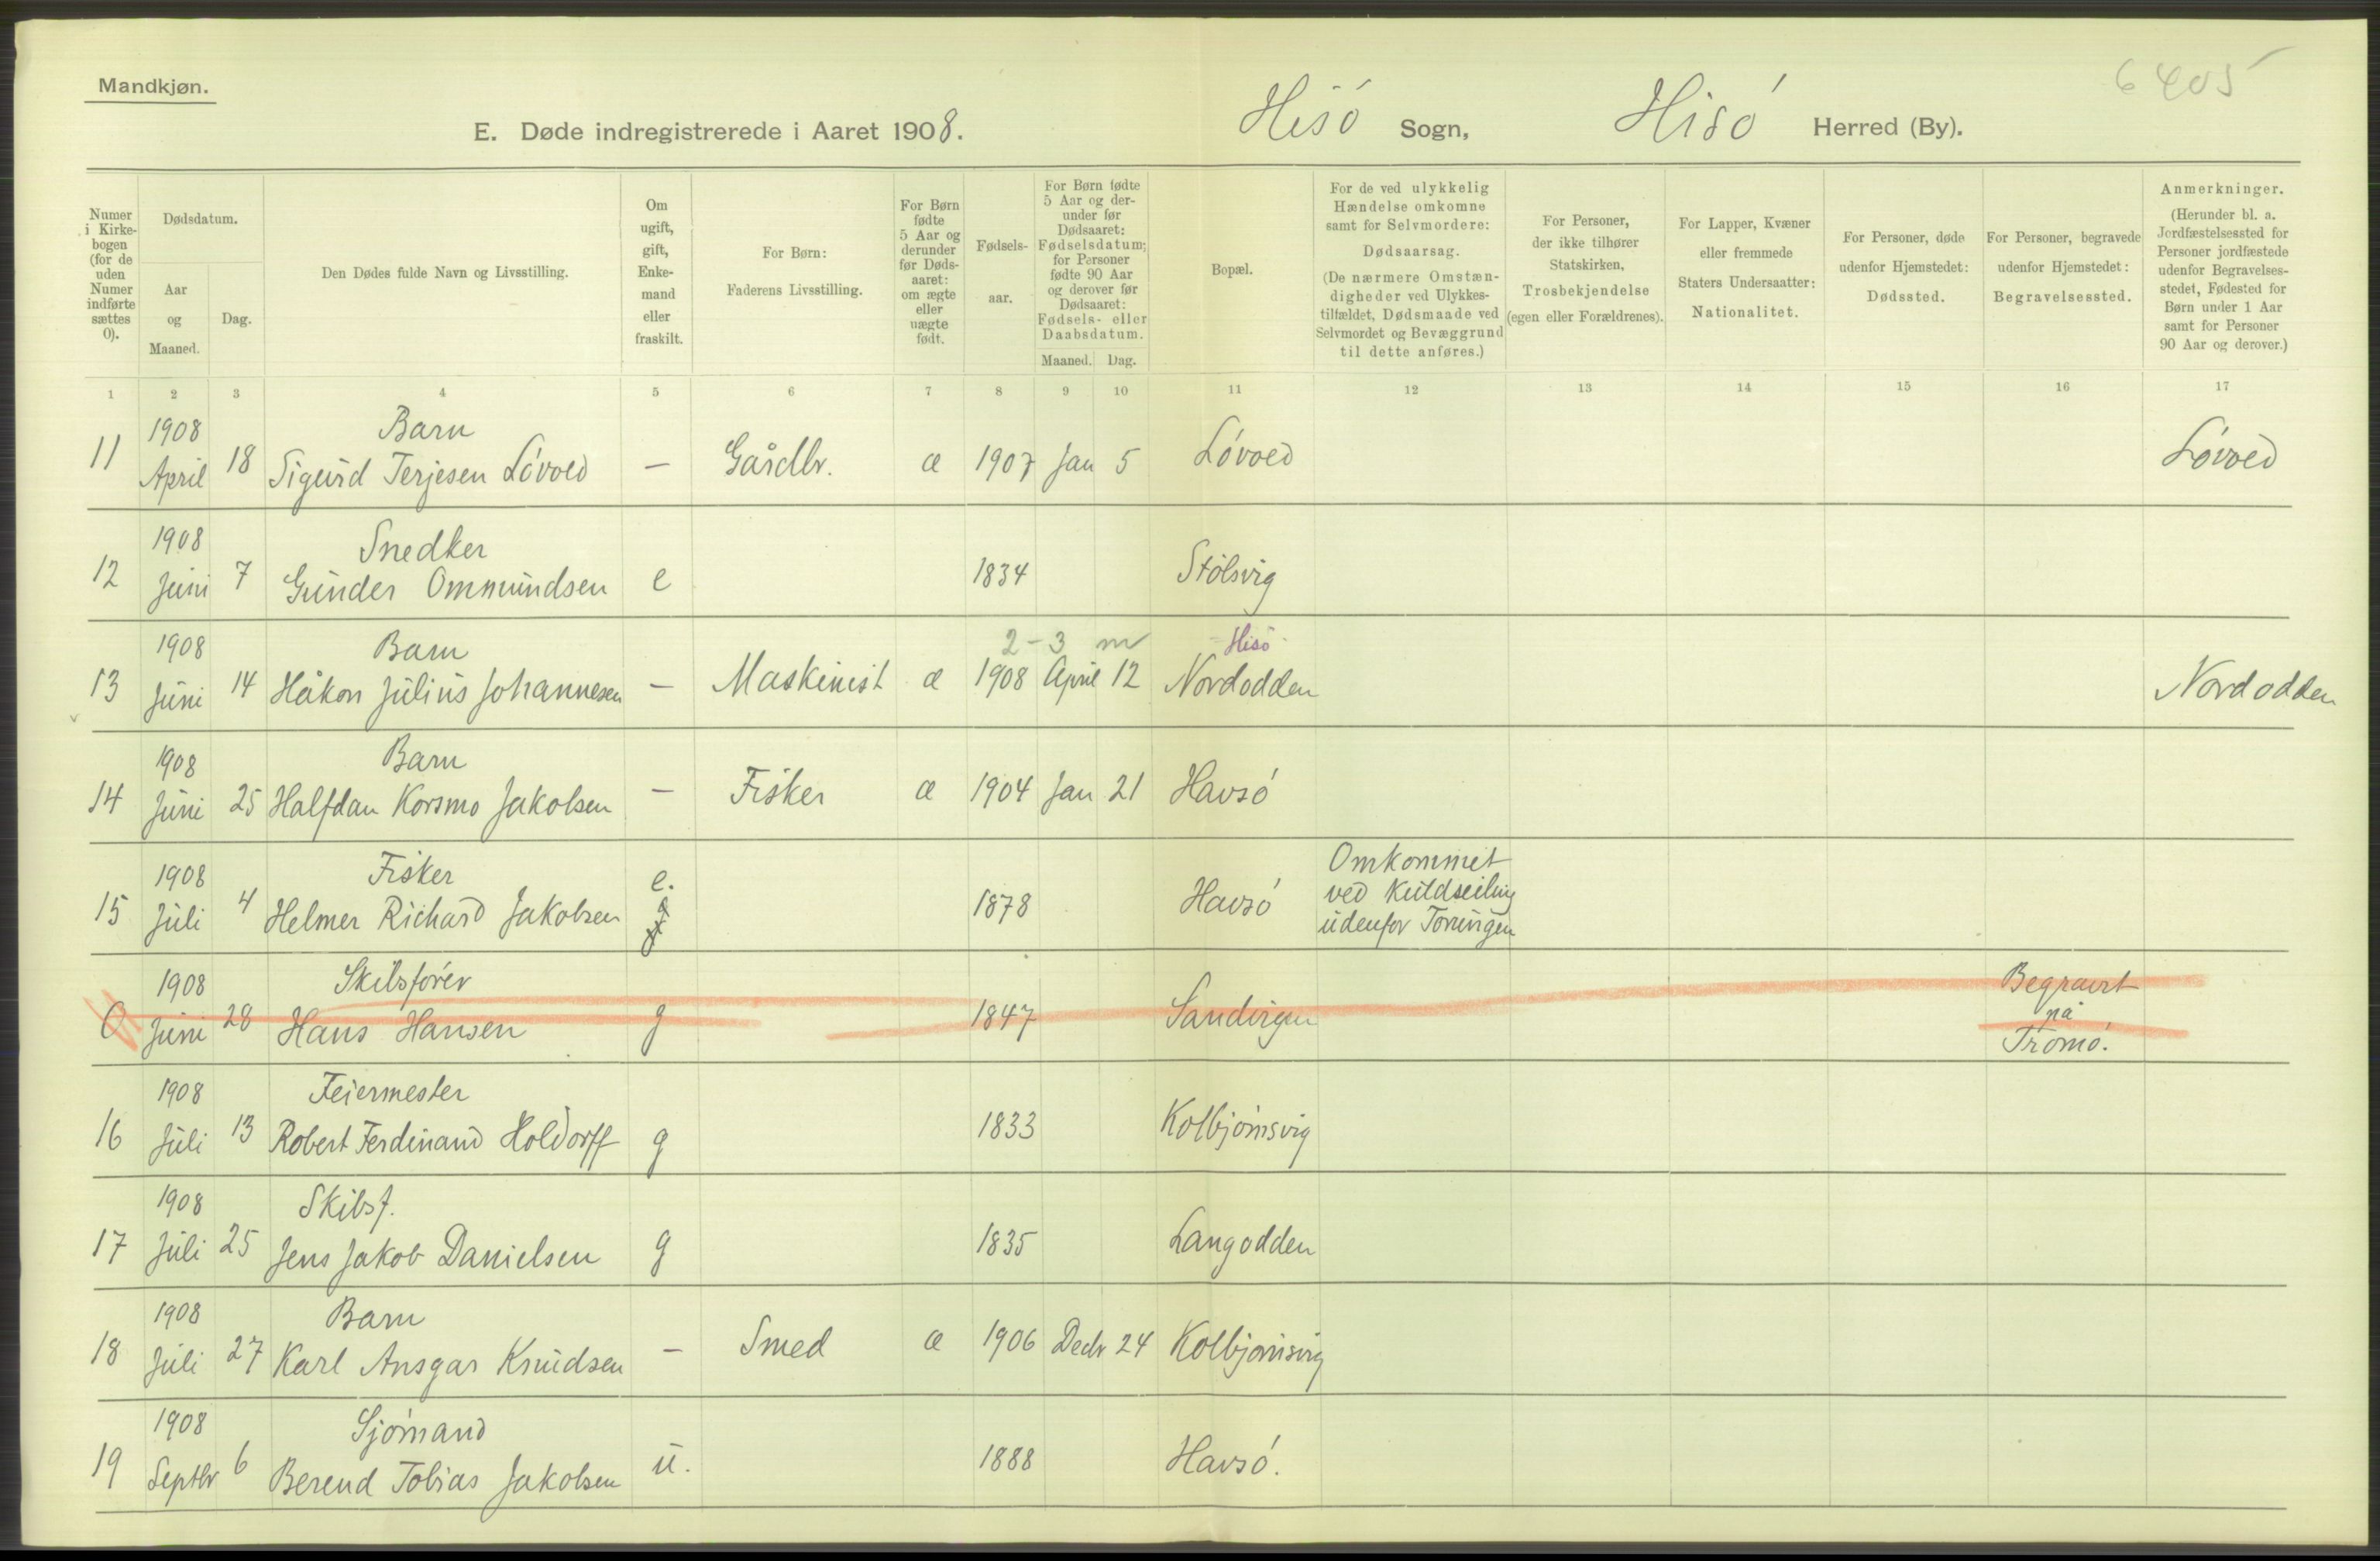 Mandkjøn.
6405
E. Døde indregistrerede i Aaret 1908.
Hisö Sogn, Hisó Herred (By).
Numer i Kirkebogen (for de uden Numer indførte sættes 0).
Dødsdatum.
Aar og Maaned.
Dag.
Den Dødes fulde Navn og Livsstilling.
Om ugift, gift, Enkemand eller fraskilt.
For Børn: Faderens Livsstilling.
For Børn fødte 5 Aar og derunder før Dødsaaret: om ægte eller uægte født.
Fødselsaar.
For Børn fødte 5 Aar og derunder før Dødsaaret: Fødselsdatum; for Personer fødte 90 Aar og derover før Dødsaaret: Fødsels- eller Daabsdatum.
Maaned. Dag.
Bopæl.
For de ved ulykkelig Hændelse omkomne samt for Selvmordere: Dødsaarsag. (De nærmere Omstændigheder ved Ulykkestilfældet, Dødsmaade ved Selvmordet og Bevæggrund til dette anføres.)
For Personer, der ikke tilhører Statskirken, Trosbekjendelse (egen eller Forældrenes).
For Lapper, Kvæner eller fremmede Staters Undersaatter: Nationalitet.
For Personer, døde udenfor Hjemstedet: Dødssted.
For Personer, begravede udenfor Hjemstedet: Begravelsessted.
Anmerkninger. (Herunder bl. a. Jordfæstelsessted for Personer jordfæstede udenfor Begravelsesstedet, Fødested for Børn under 1 Aar samt for Personer 90 Aar og derover.)
1 2 3 4 5 6 7 8 9 10 11 12 13 14 15 16 17
1908 Barn
11 April 18 Sigurd Terjesen Lóvold — Gårdbr. æ 1907 Jan 5 Lóvold Lóvold
1908 Snedker
12 Juni 7 Gunder Ommundsen e 1834 Stólsvig
1908 Barn 2-3 m Hisö
13 Juni 14 Håkon Julius Johannesen — Maskinist æ 1908 April 12 Nordodden Nordodden
1908 Barn
14 Juni 25 Halfdan Korsmo Jakobsen — Fisker æ 1904 Jan 21 Havsó
1908 Fisker e. Omkommet
15 Juli 4 Helmer Richard Jakobsen 1878 Havsó ved Kuldseiling
udenfor Torungen
1908 Skibsfórer Begravet
0 Juni 28 Hans Hansen g 1847 Sandvigen på
Tromó.
1908 Feiermester
16 Juli 13 Robert Ferdinand Holdorff g 1833 Kolbjórnsvig
1908 Skibsf.
17 Juli 25 Jens Jakob Danielsen g 1835 Langodden
1908 Barn
18 Juli 27 Karl Ansgar Knudsen — Smed æ 1906 Decbr 24 Kolbjórnsvig
1908 Sjómand
19 Septbr 6 Berend Tobias Jakobsen u. 1888 Havsó.